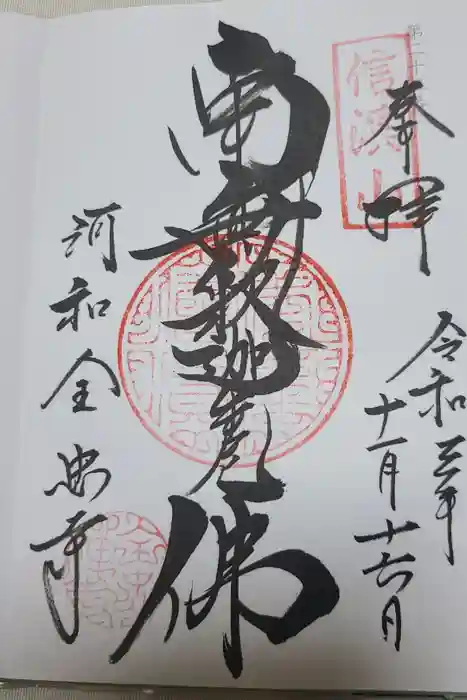 奉拝
信濃山
令和三年
十一月十六日
南無釈迦牟尼佛
河和全忠寺